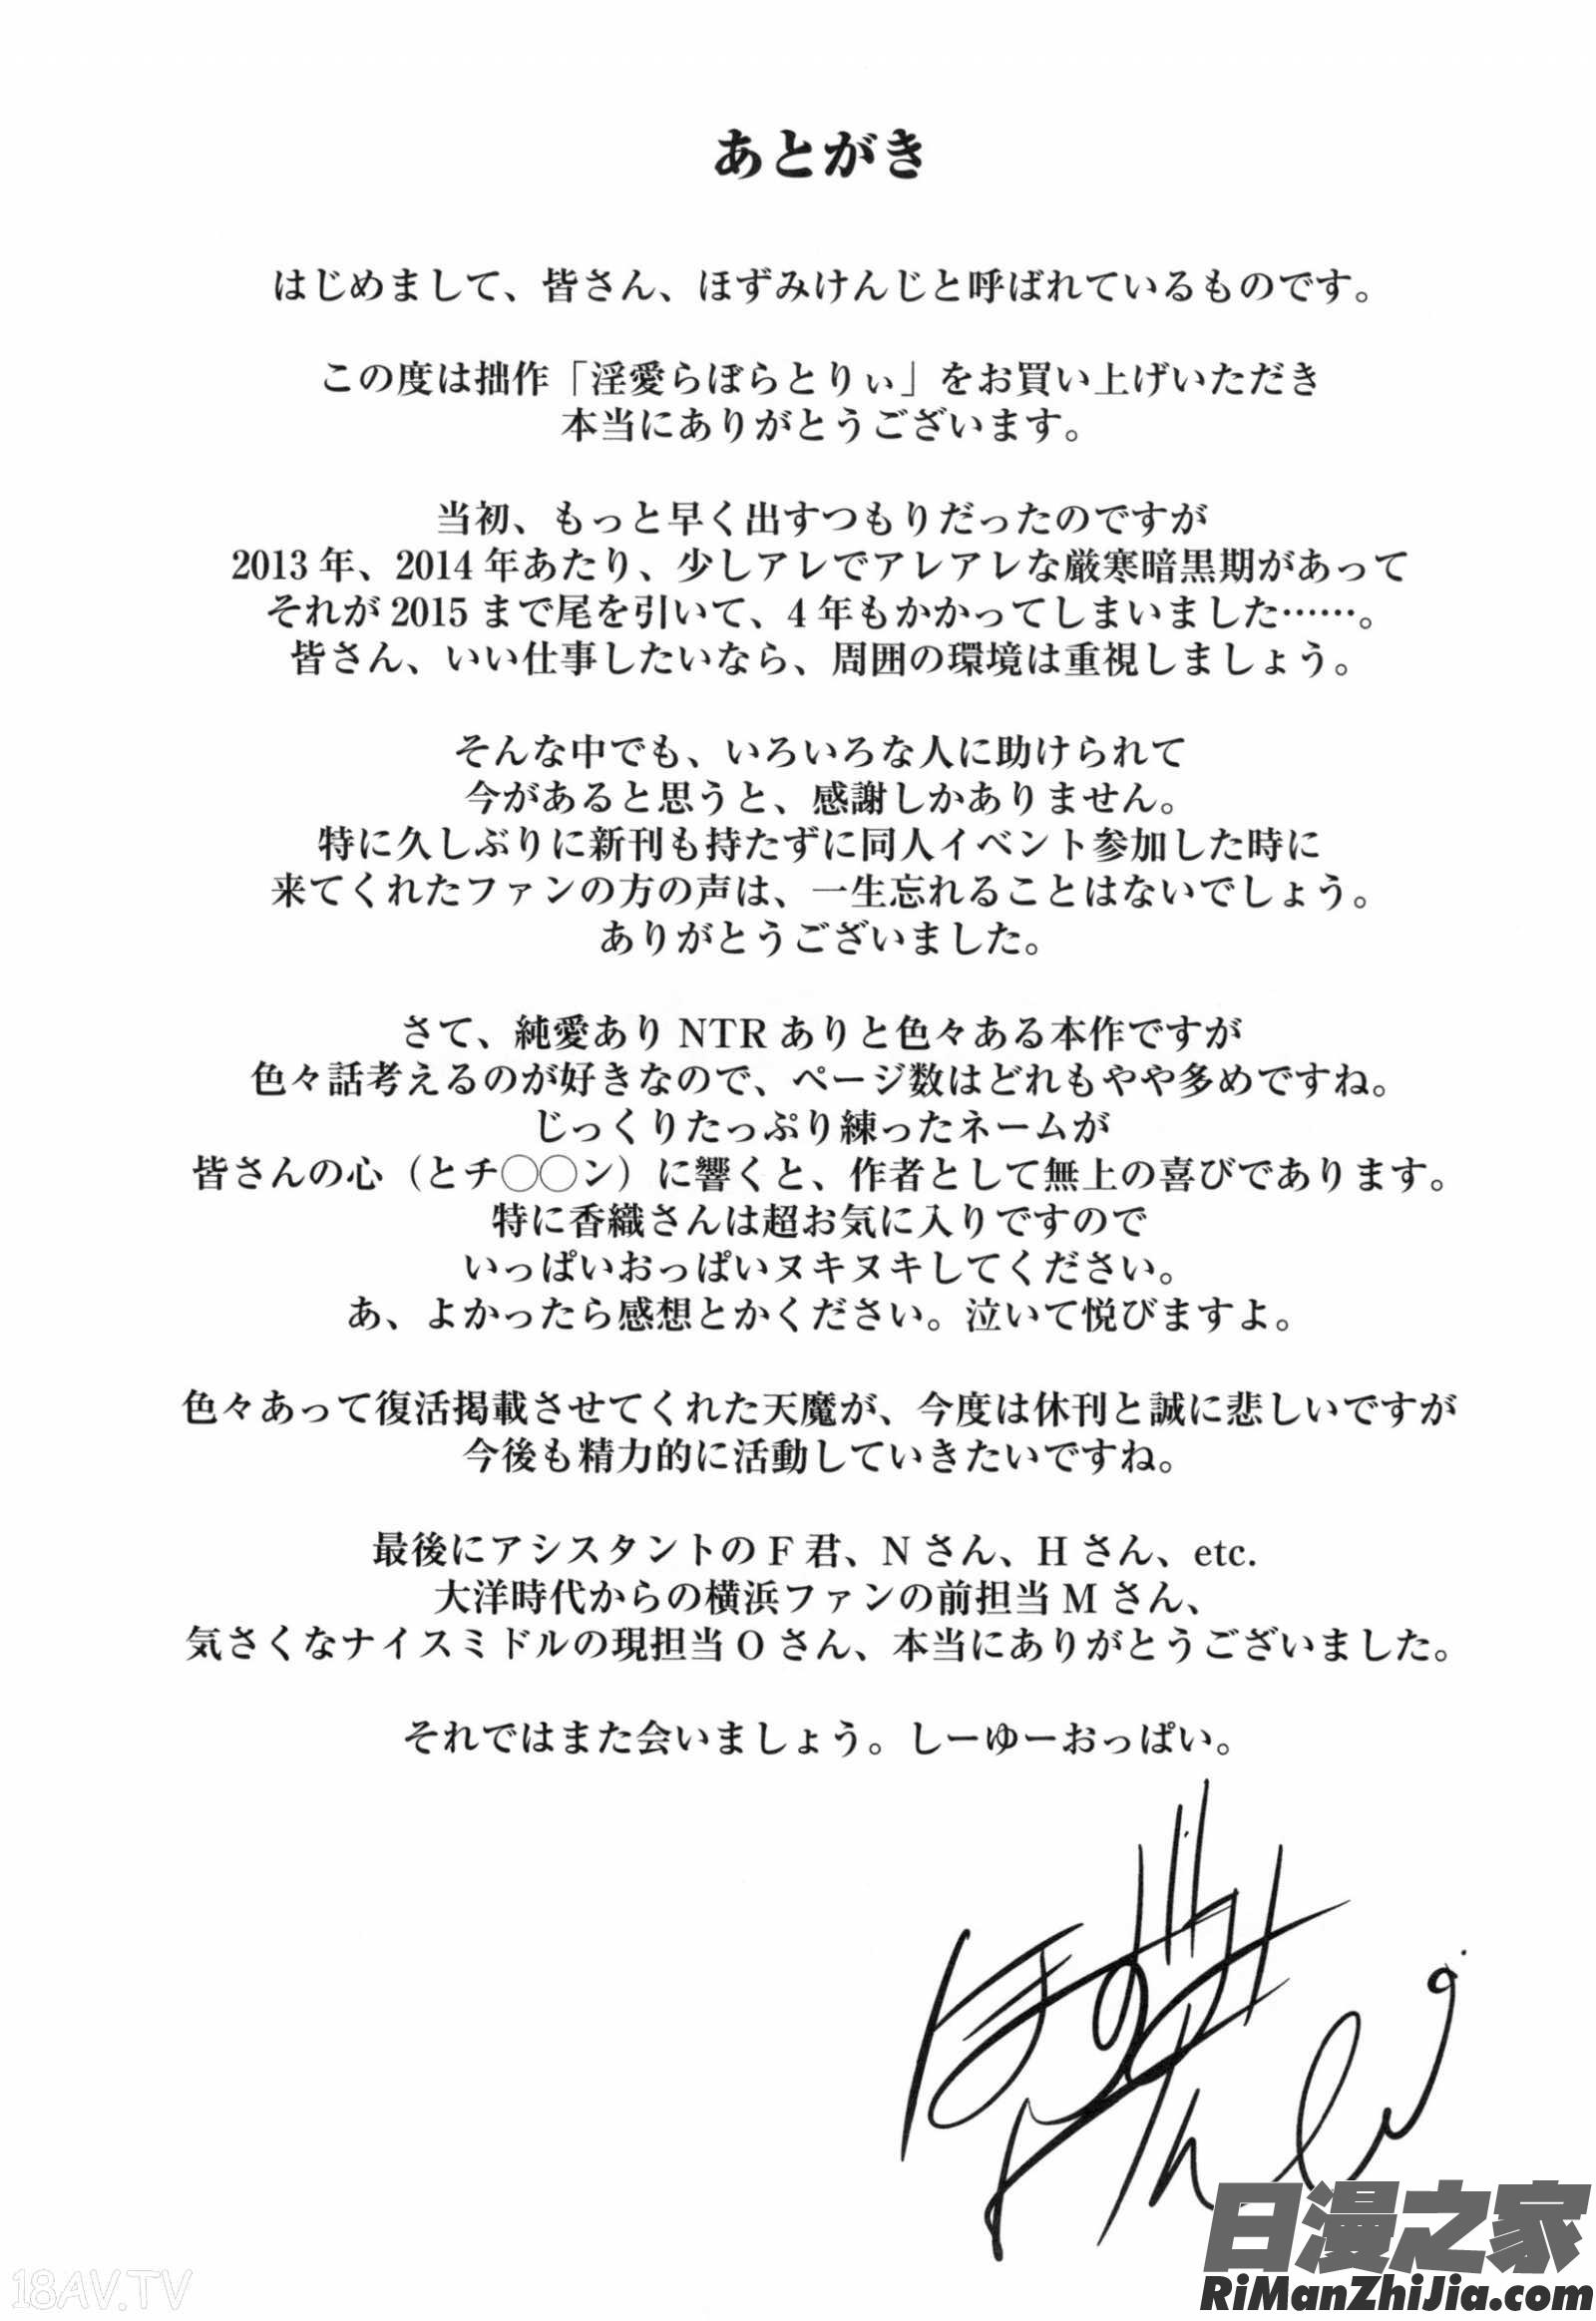 あとがき
はじめまして、皆さん、ほずみけんじと呼ばれているものです。
この度は拙作「淫愛らぼらとりぃ」をお買い上げいただき
本当にありがとうございます。
当初、もっと早く出すつもりだったのですが
2013年、2014年あたり、少しアレでアレアレな厳寒暗黒期があって
それが2015まで尾を引いて、4年もかかってしまいました……。
皆さん、いい仕事したいなら、周囲の環境は重視しましょう。
そんな中でも、いろいろな人に助けられて
今があると思うと、感謝しかありません。
特に久しぶりに新刊も持たずに同人イベント参加した時に
来てくれたファンの方の声は、一生忘れることはないでしょう。
ありがとうございました。
さて、純愛ありNTRありと色々ある本作ですが
色々話考えるのが好きなので、ページ数はどれもやや多めですね。
じっくりたっぷり練ったネームが
皆さんの心（とチ◯◯ン）に響くと、作者として無上の喜びであります。
特に香織さんは超お気に入りですので
いっぱいおっぱいヌキヌキしてください。
あ、よかったら感想とかください。泣いて悦びますよ。
色々あって復活掲載させてくれた天魔が、今度は休刊と誠に悲しいですが
今後も精力的に活動していきたいですね。
最後にアシスタントのF君、Nさん、Hさん、etc.
大洋時代からの横浜ファンの前担当Mさん、
気さくなナイスミドルの現担当Oさん、本当にありがとうございました。
それではまた会いましょう。しーゆーおっぱい。
日漫之家
RiManZhiJia.com
18AV.TV